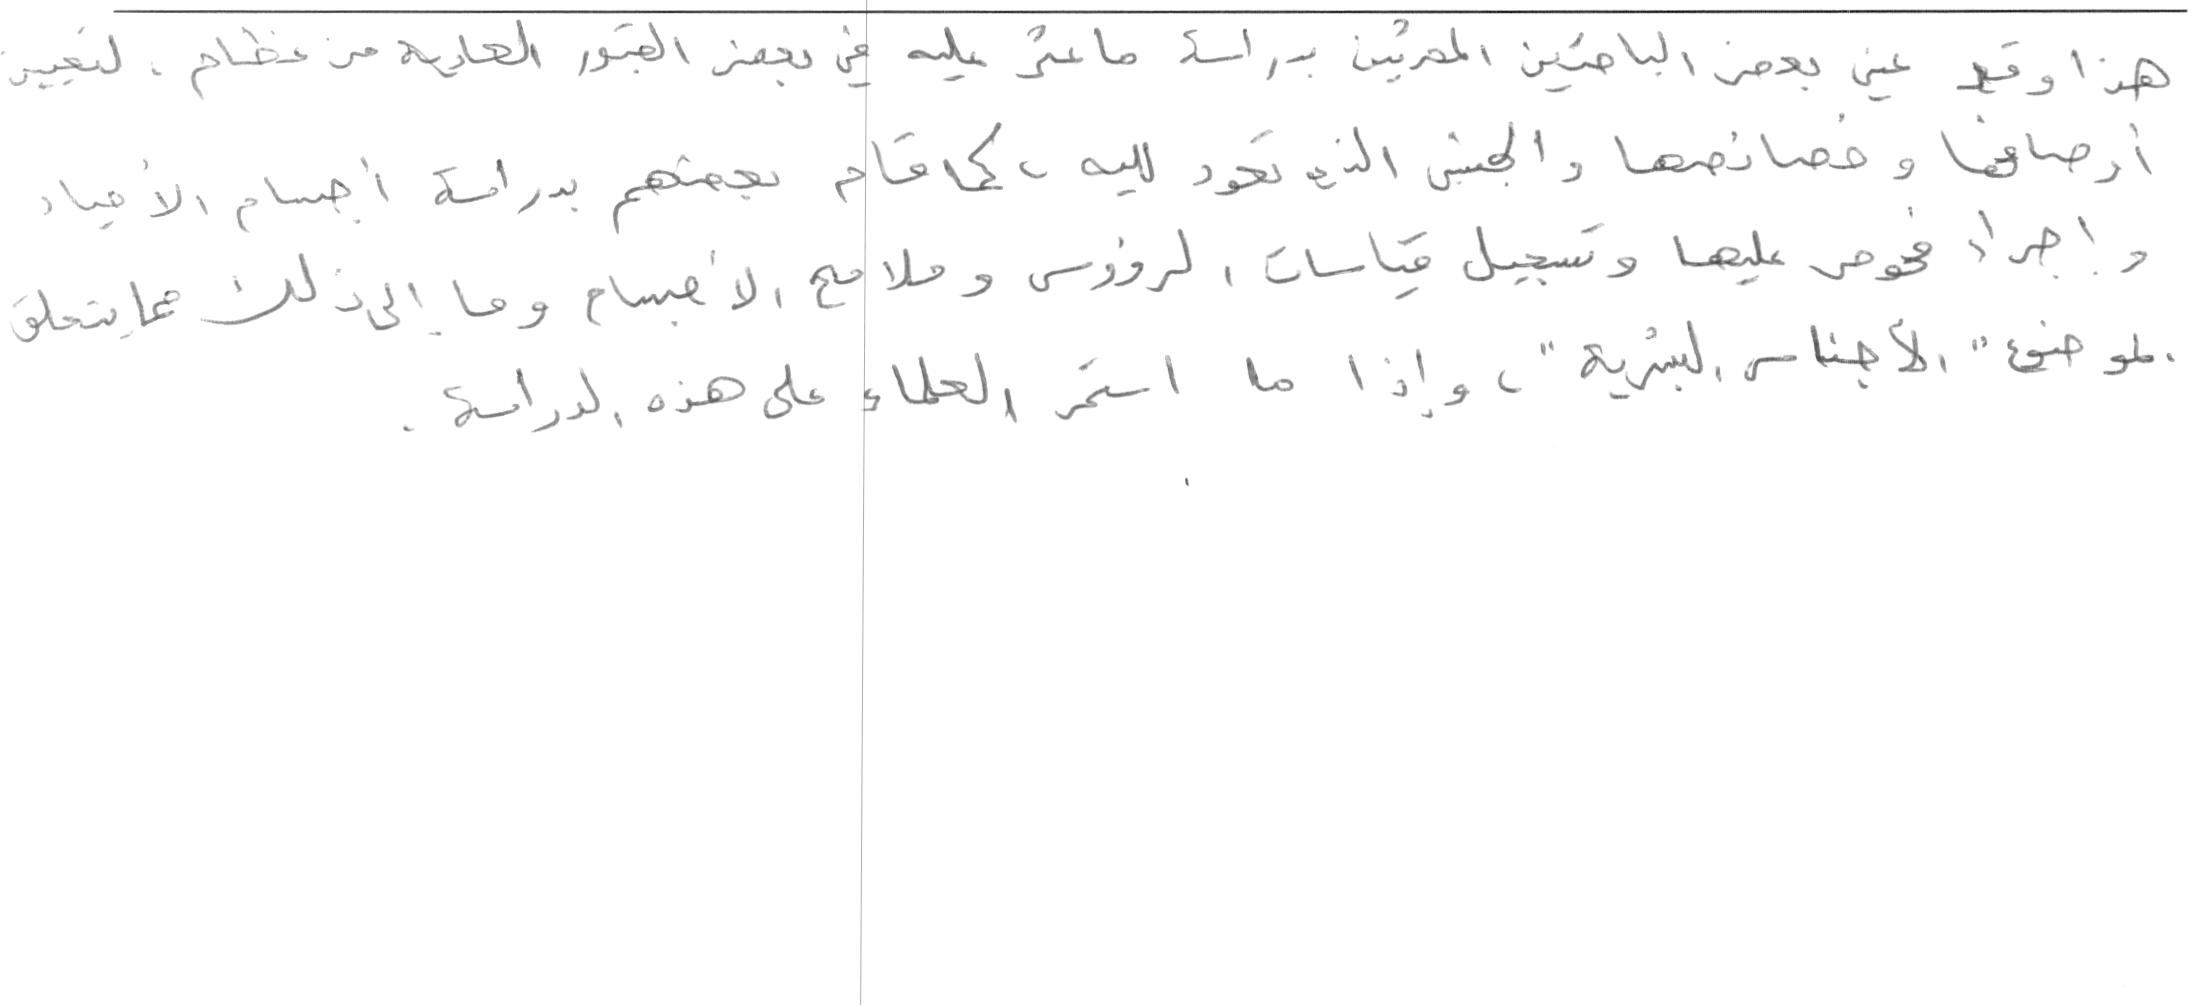 هذا وقد عني بعض الباحثين المحدثين بدراسة ما عثر عليه في بعض القبور العادية من عظام، لتعيين
أوصافها وخصائصها والجنس الذي تعود إليه، كما قام بعضهم بدراسة أجسام الأحياء
وإجراء فحوص عليها وتسجيل قياسات الرؤوس وملامح الأجسام وما إلى ذلك مما يتعلق
لموضوع "الأجناس البشرية"، وإذا ما استمر العلماء على هذه الدراسة.